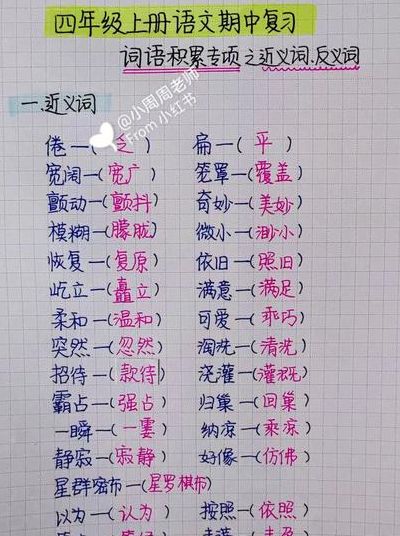 四年级上册语文期中复习
词语积累专项之近义词.反义词
@小周周老师
From 小红书
一.近义词
倦一(乏) 扁一(平)
宽阔一(宽广) 笼罩一(覆盖)
颤动一(颤抖) 奇妙一(美妙)
模糊一(朦胧) 微小一(渺小)
恢复一(复原) 依旧一(照旧)
屹立一(矗立) 满意一(满足)
柔和一(温和) 可爱一(乖巧)
突然一(忽然) 淘洗一(清洗)
招待一(款待) 浇灌一(灌溉)
霸占一(强占) 归巢一(回巢)
一瞬一(一霎) 纳凉一(乘凉)
静寂一(寂静) 好像一(仿佛)
星群密布一(星罗棋布)
以为一(认为) 按照一(依照)